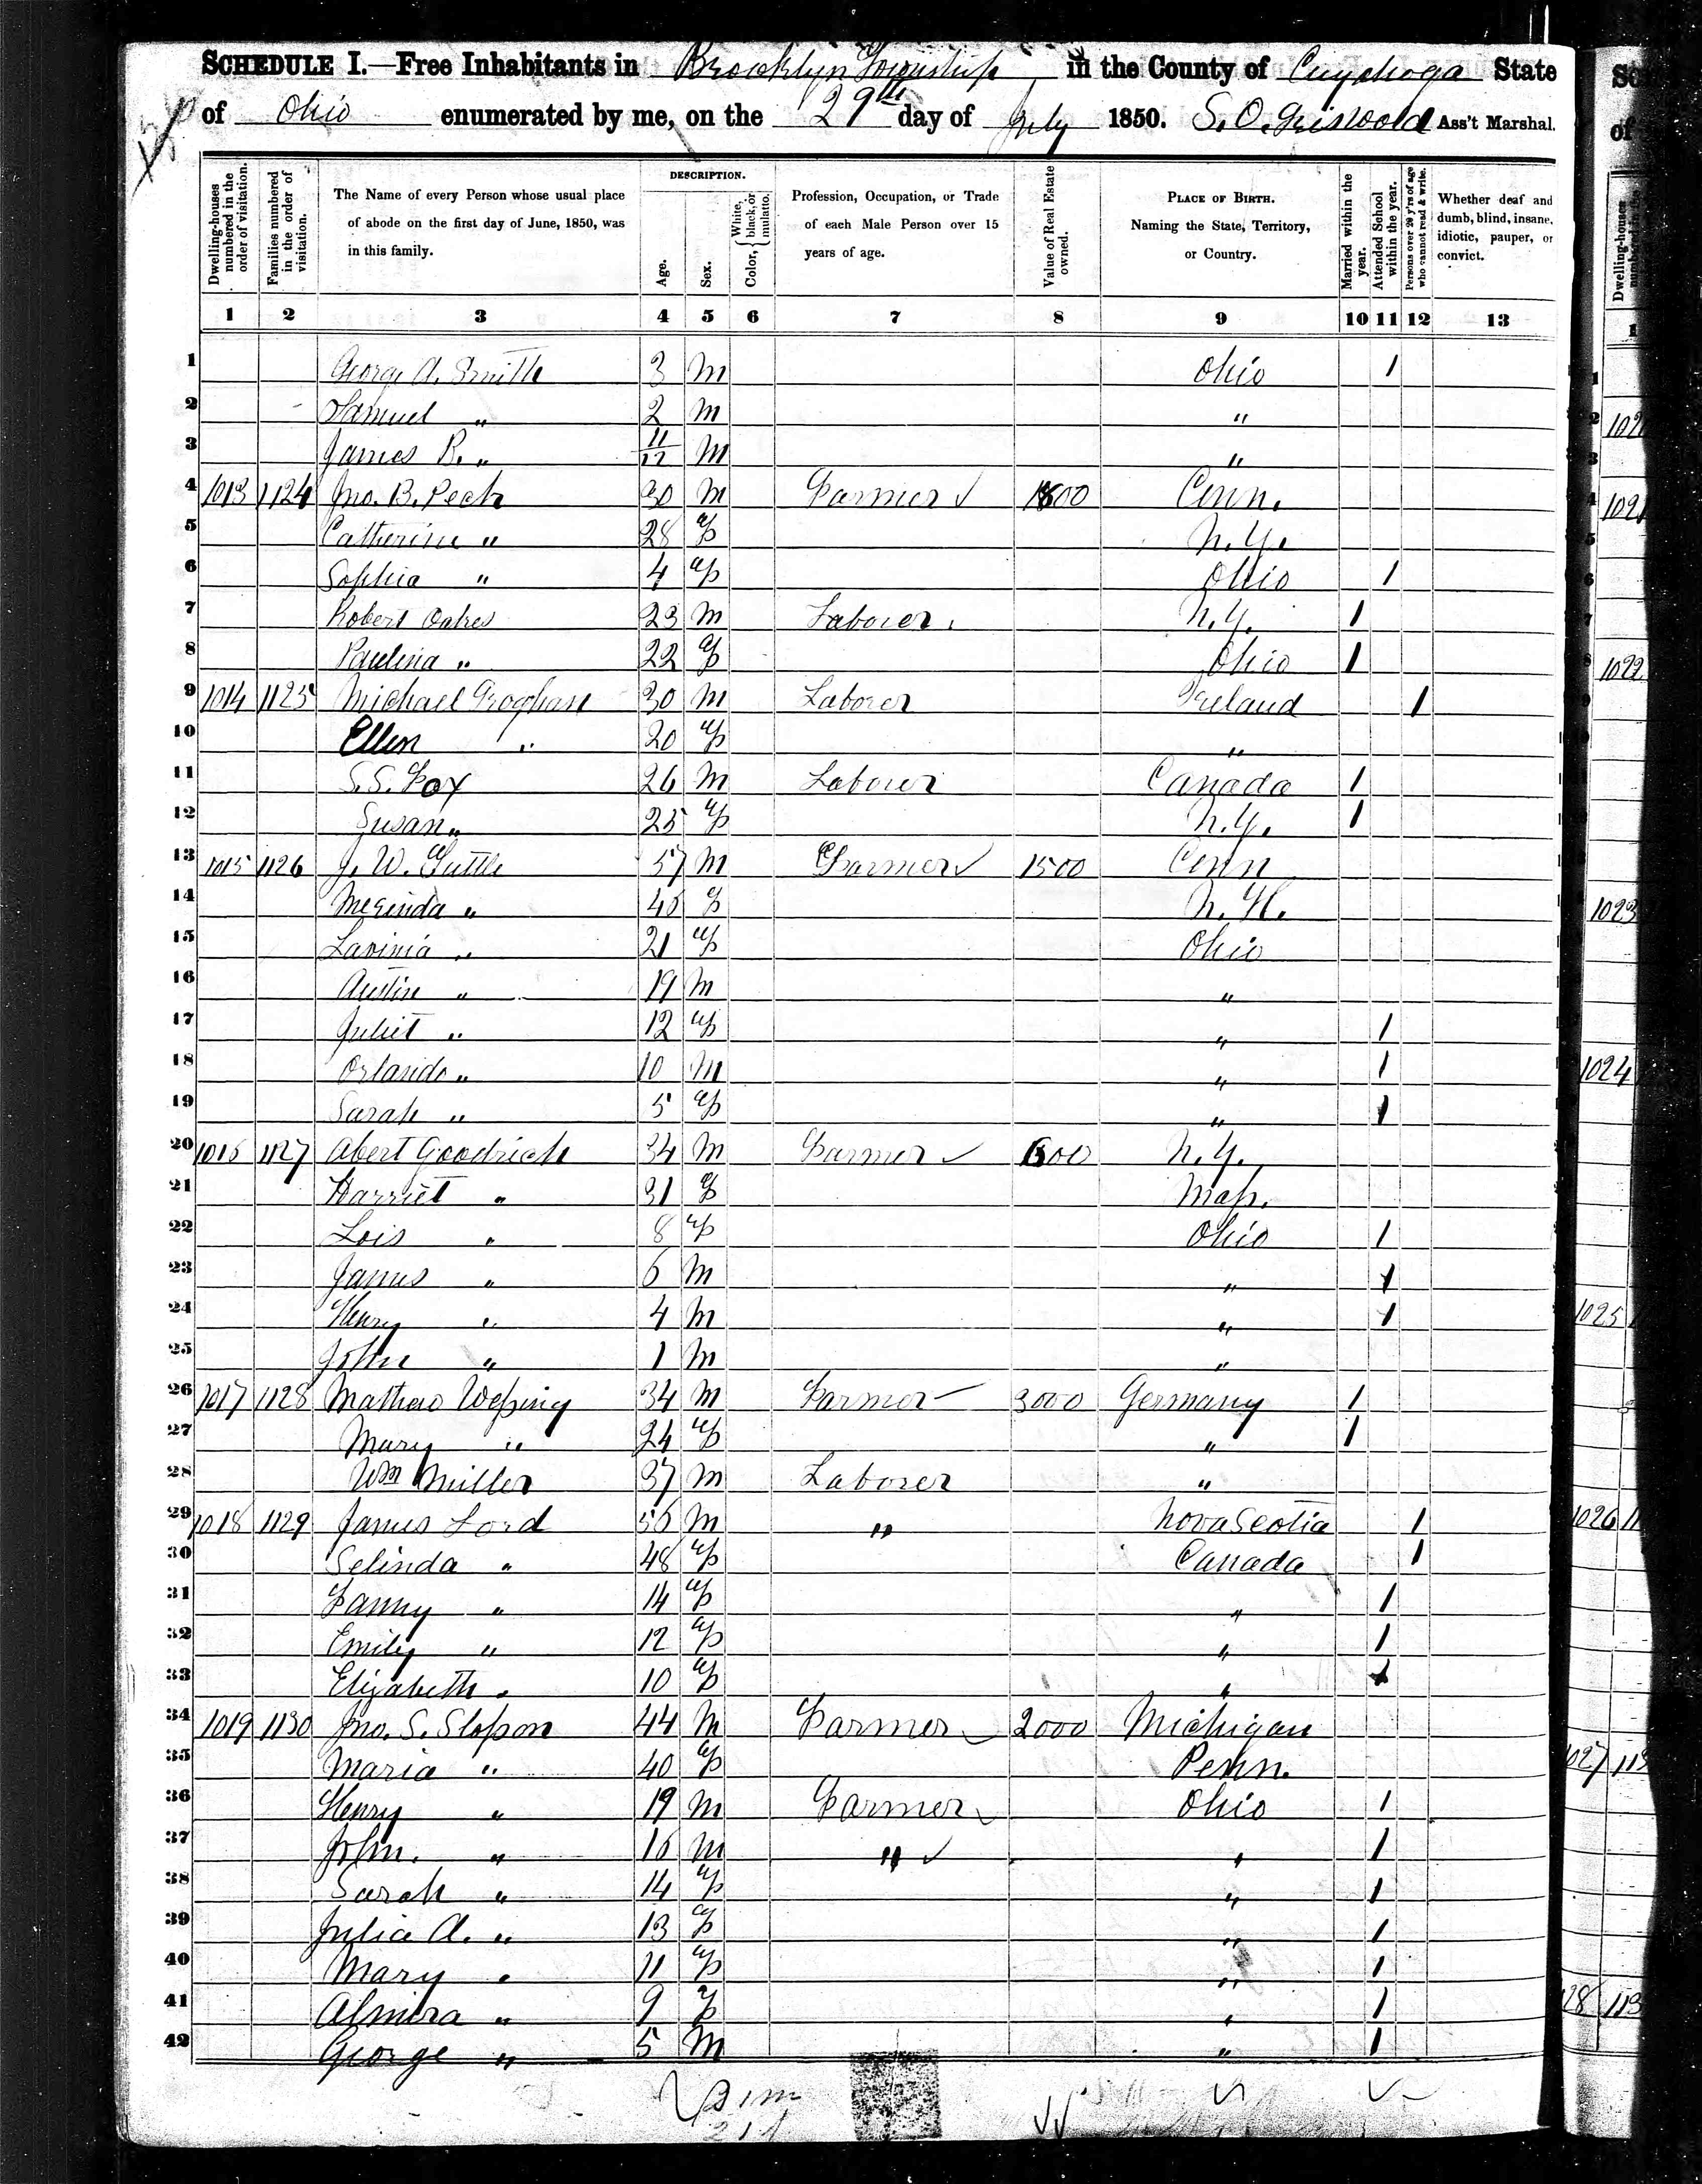 SCHEDULE I.—Free Inhabitants in Brooklyn Township in the County of Cuyahoga State
of Ohio enumerated by me, on the 29th day of July 1850. S. O. Griswold Ass't Marshal.
Dwelling-houses numbered in the order of visitation.
Families numbered in the order of visitation.
The Name of every Person whose usual place of abode on the first day of June, 1850, was in this family.
DESCRIPTION.
Age.
Sex.
Color, { White, black, or mulatto.
Profession, Occupation, or Trade of each Male Person over 15 years of age.
Value of Real Estate owned.
PLACE OF BIRTH. Naming the State, Territory, or Country.
Married within the year.
Attended School within the year.
Persons over 20 y'rs of age who cannot read & write.
Whether deaf and dumb, blind, insane, idiotic, pauper, or convict.
1 2 3 4 5 6 7 8 9 10 11 12 13
1 George A. Smith 3 M Ohio 1
2 Samuel " 2 M "
3 James R. " 11/12 M "
4 1013 1124 Jno. B. Peck 30 M Farmer ✓ 1800 Conn.
5 Catherine " 28 F N.Y.
6 Sophia " 4 F Ohio 1
7 Robert Oakes 23 M Laborer. N.Y. 1
8 Paulina " 22 F Ohio 1
9 1014 1125 Michael Groghan 30 M Laborer Ireland 1
10 Ellen " 20 F "
11 S.S. Fox 26 M Laborer Canada 1
12 Susan " 25 F N.Y. 1
13 1015 1126 J. W. Tuttle 57 M Farmer ✓ 1500 Conn
14 " 45 F N.H.
15 Lavinia " 21 F Ohio
16 Austin " 19 M "
17 Juliet " 12 F " 1
18 Orlando " 10 M " 1
19 Sarah " 5 F " 1
20 1016 1127 Abert Goodrich 34 M Farmer ✓ 1500 N.Y.
21 Harriet " 31 F Mass.
22 Lois " 8 F Ohio 1
23 James " 6 M " 1
24 Henry " 4 M " 1
25 John " 1 M "
26 1017 1128 Mathew Wessing 34 M Farmer 3000 Germany 1
27 Mary " 24 F " 1
28 Wm Miller 37 M Laborer "
29 1018 1129 James Lord 56 M " Nova Scotia 1
30 Selinda " 48 F Canada 1
31 Fanny " 14 F " 1
32 Emily " 12 F " 1
33 Elizabeth " 10 F " 1
34 1019 1130 Jno. S. Slosson 44 M Farmer 2000 Michigan
35 Maria " 40 F Penn.
36 Henry " 19 M Farmer Ohio 1
37 John. " 16 M " ✓ " 1
38 Sarah " 14 F " 1
39 Julia A. " 13 F " 1
40 Mary " 11 F " 1
41 Almira " 9 F " 1
42 George " 5 M " 1